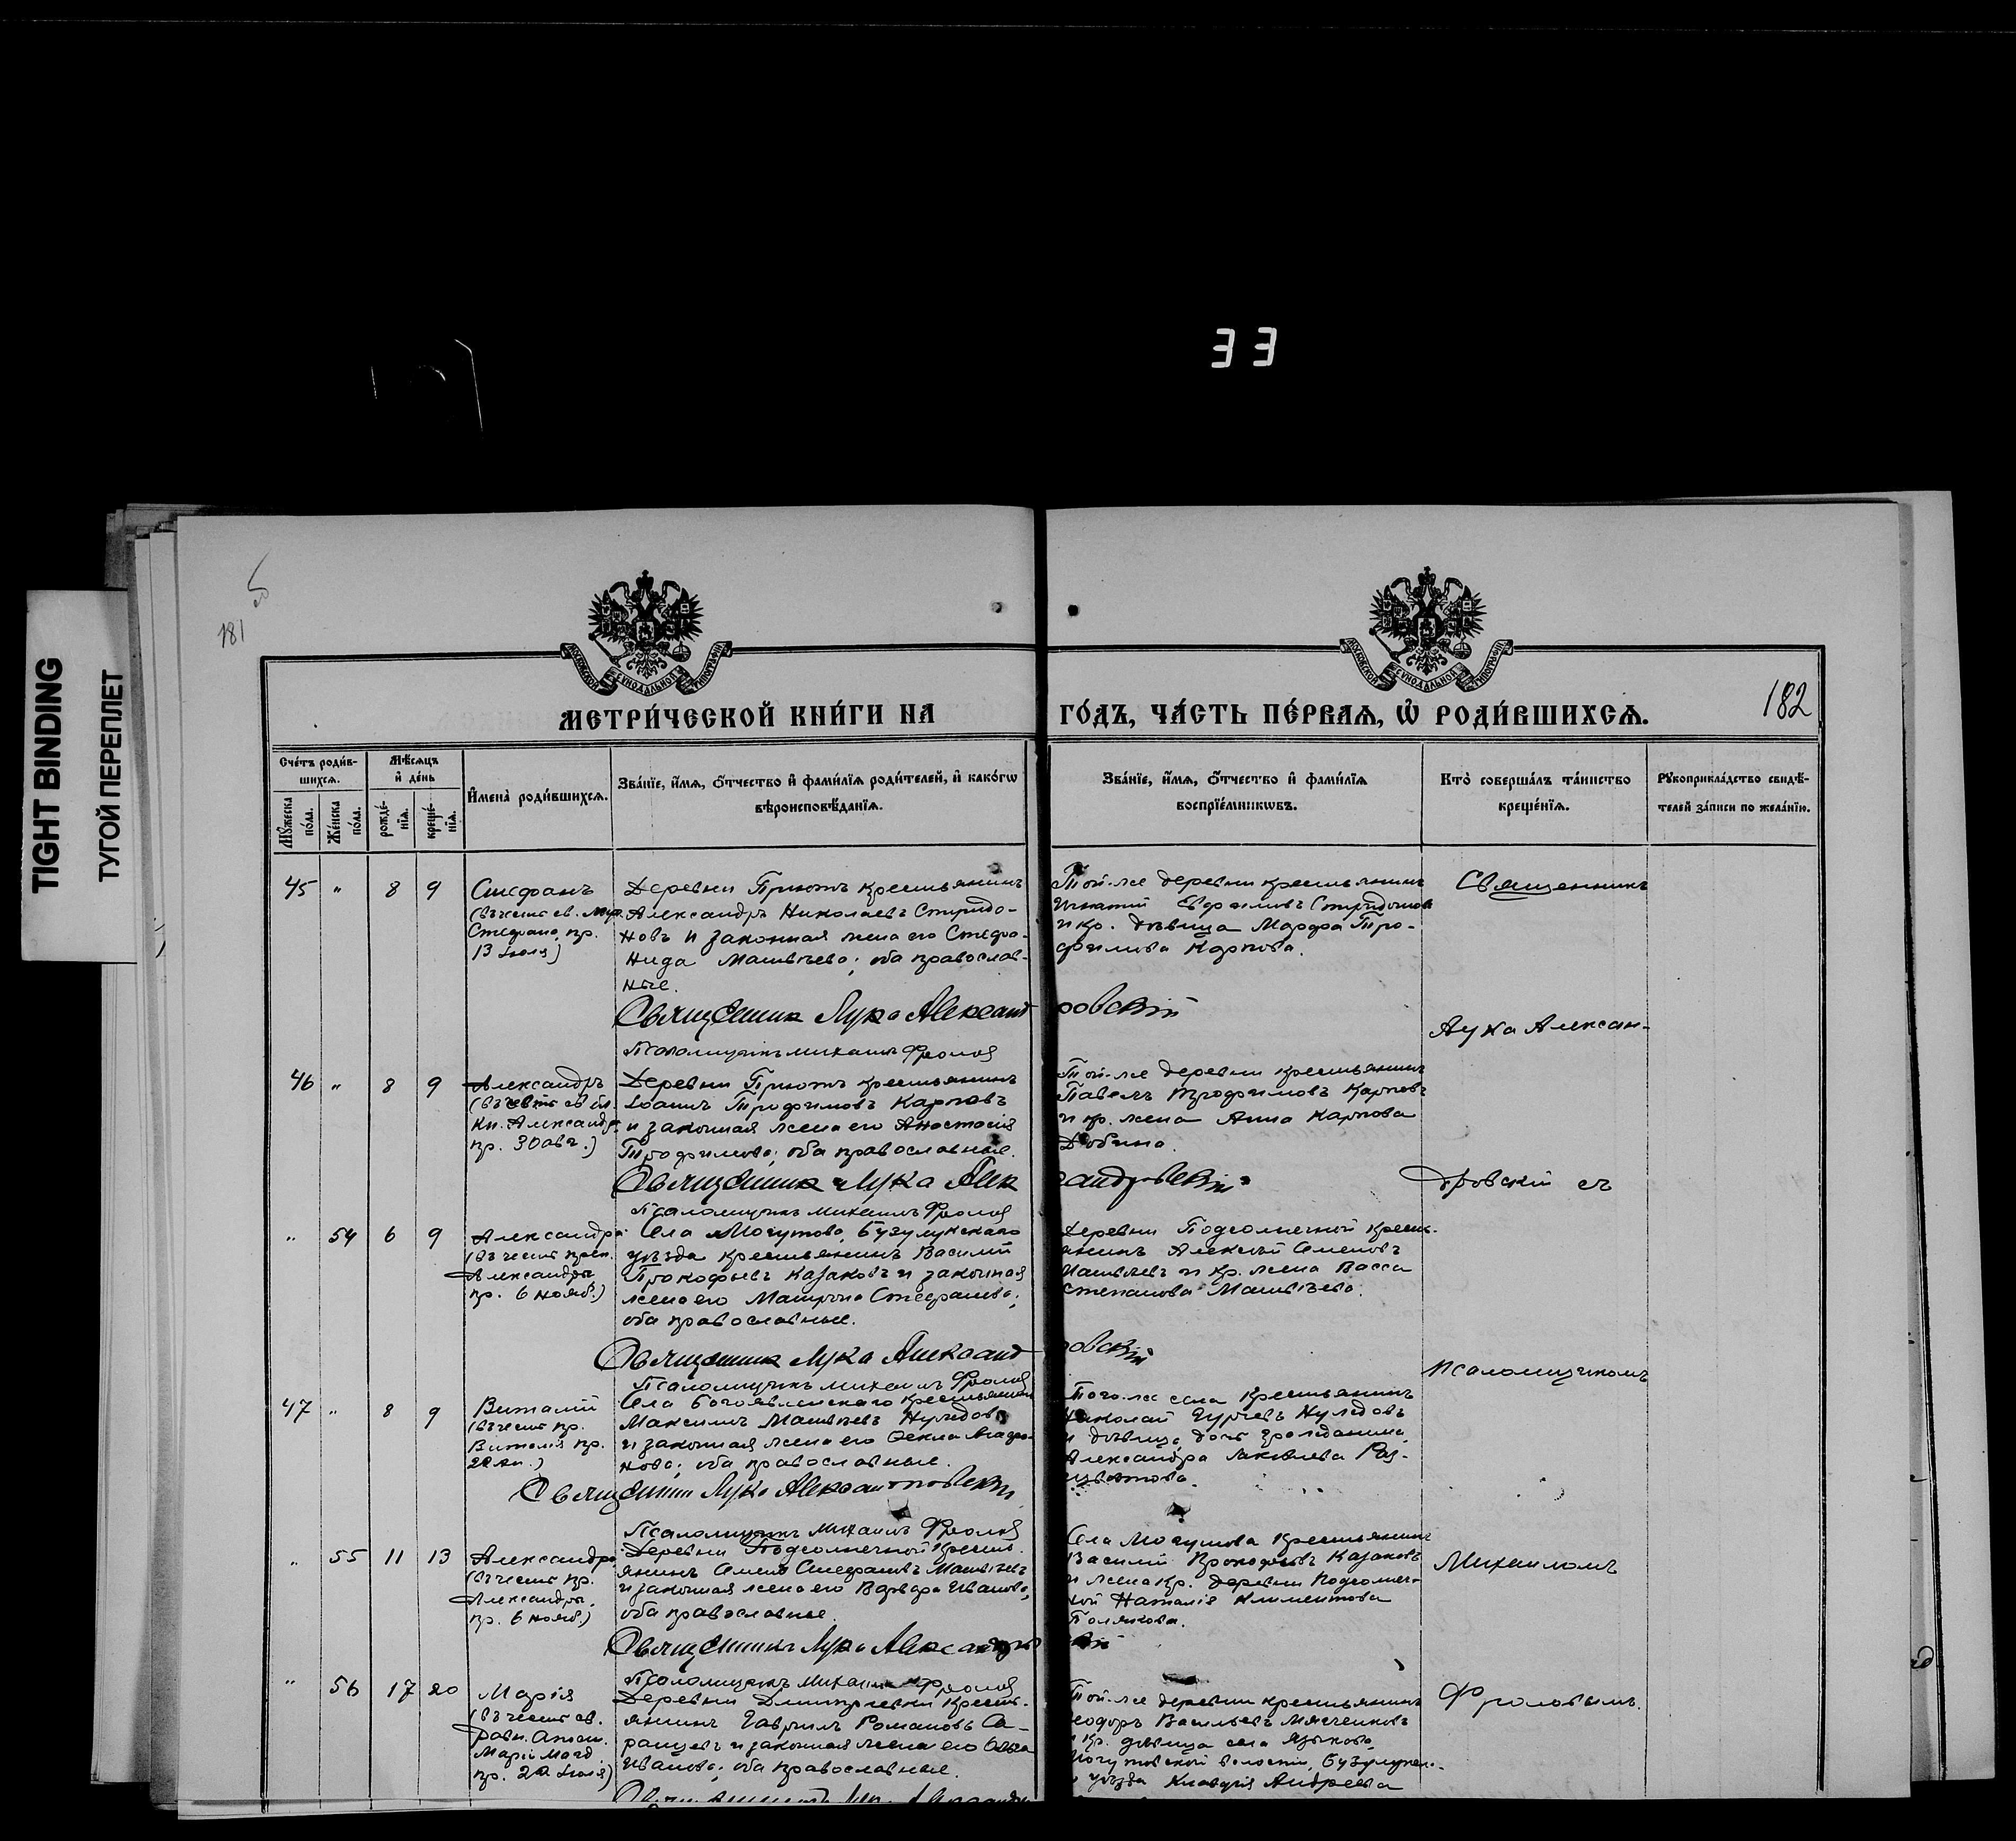 33
TIGHT BINDING
ТУГОЙ ПЕРЕПЛЕТ
181
182
МОСКОВСКОЙ СѴНОДАЛЬНОЙ ТИПОГРАФІИ
МОСКОВСКОЙ СѴНОДАЛЬНОЙ ТИПОГРАФІИ
МЕТРИ́ЧЕСКОЙ КНИ́ГИ НА ГО́ДЪ, ЧА́СТЬ ПЕ́РВАѦ, Ѡ҆ РОДИ́ВШИХСѦ.
Сче́тъ роди́в-
шихсѧ.
Мꙋ́жеска
по́ла.
Же́нска
по́ла.
Мѣ́сѧцъ
и҆ де́нь
рожде́-
нїѧ.
креще́-
нїѧ.
И҆мена̀ роди́вшихсѧ.
Зва́нїе, и҆́мѧ, ѻ҆́тчество и҆ фами́лїѧ роди́телей, и҆ како́гѡ
вѣроисповѣ́данїѧ.
Зва́нїе, и҆́мѧ, ѻ҆́тчество и҆ фами́лїѧ
воспрїе́мникѡвъ.
Кто̀ соверша́лъ та́инство
креще́нїѧ.
Рꙋкоприкла́дство свидѣ́-
телей за́писи по жела́нїю.
45 " 8 9
Стефанъ
(въ честь св. Муч.
Стефана, пр.
13 Іюля)
Деревни Прютъ крестьянинъ
Александръ Николаевъ Спиридо-
новъ и законная жена его Стефа-
нида Матвѣева; оба православ-
ные.
Священник Лука Александровскій
Псаломщикъ Михаилъ Фролов
Той-же деревни крестьянинъ
Игнатій Ефимовъ Спиридоновъ
и кр. дѣвица Марфа Тро-
фимова Карпова.
Священникъ
Лука Алексан-
46 " 8 9
Александръ
(въ честь св. бл.
кн. Александр.
пр. 30 авг.)
Деревни Прютъ крестьянинъ
Іоаннъ Трофимовъ Карповъ
и законная жена его Анастасія
Трофимова; оба православные.
Священник Лука Александровскій
Псаломщикъ Михаилъ Фролов
Той-же деревни крестьянинъ
Павелъ Трофимовъ Карповъ
и кр. жена Анна Карпова
дровскій съ
" 54 6 9
Александра
(въ честь преп.
Александры
пр. 6 нояб.)
Села Могутова, Бузулукскаго
уѣзда крестьянинъ Василій
Прокофьевъ Казаковъ и законная
жена его Матрона Стефанова;
оба православные.
Священник Лука Александровскій
Псаломщикъ Михаилъ Фролов
Деревни Подсолнечной крест-
янинъ Алексѣй Семеновъ
Матвѣевъ и кр. жена Васса
Степанова Матвѣева.
псаломщикомъ
47 " 8 9
Виталій
(въ честь пр.
Виталія пр.
22 ап.)
Села Богоявленскаго крестьянин
Максимъ Матвѣевъ
и законная жена его Ѳекла Агафо-
нова; оба православные.
Священник Лука Александровскій
Псаломщикъ Михаилъ Фролов
Того-же села крестьянинъ
Николай Гурьевъ
и дѣвица, дочь гражданина,
Александра Яковлева Раз-
цвѣтова.
" 55 11 13
Александра
(въ честь пр.
Александры,
пр. 6 нояб.)
Деревни Подсолнечной крест-
янинъ Семенъ Стефановъ Матвѣевъ
и законная жена его Варвара Иванова,
оба православные.
Священникъ Лука Александровскій
Псаломщикъ Михаилъ Фролов
Села Могутова крестьянинъ
Василій Прокофьевъ Казаковъ
и жена кр. деревни Подсолнеч-
ной Наталія Климентова
Полякова.
Михаиломъ
" 56 17 20
Марія
(въ честь св.
равн. апост.
Маріи Магд.
пр. 22 Іюля)
Деревни Дмитріевки крест-
янинъ Гавріилъ Романовъ Са-
ранцевъ и законная жена его
Иванова; оба православные.
Той-же деревни крестьянинъ
Ѳеодоръ Васильевъ Мясченковъ
и кр. дѣвица села Языкова,
Могутовской волости, Бузулукск.
уѣзда Клавдія Андреева
Фроловымъ.